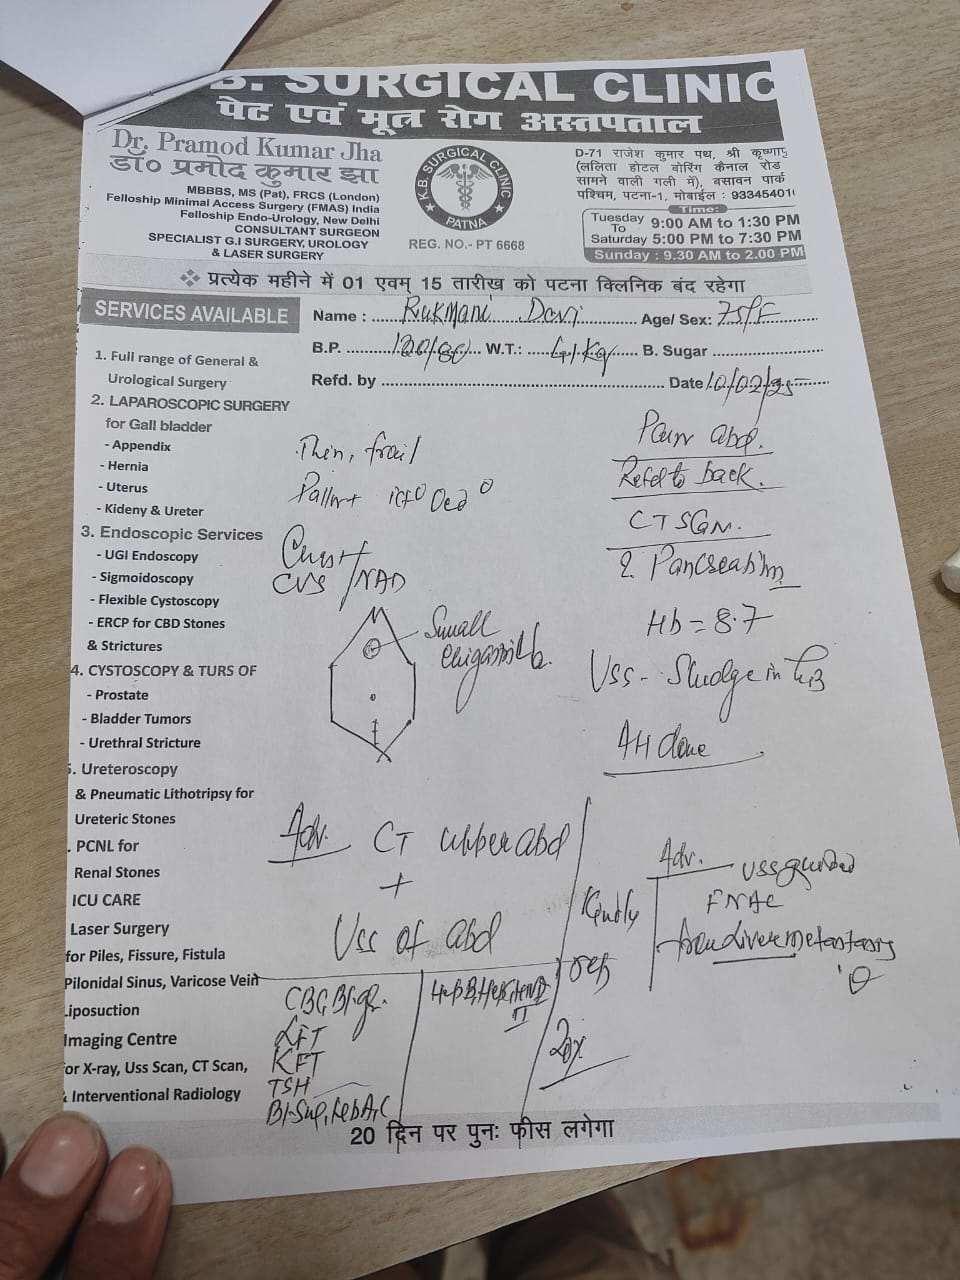 B. SURGICAL CLINIC
पेट एवं मूत्र रोग अस्तपताल
Dr. Pramod Kumar Jha
डॉ० प्रमोद कुमार झा
MBBBS, MS (Pat), FRCS (London)
Felloship Minimal Access Surgery (FMAS) India
Felloship Endo-Urology, New Delhi
CONSULTANT SURGEON
SPECIALIST G.I SURGERY, UROLOGY
& LASER SURGERY
K.B. SURGICAL CLINIC
PATNA
REG. NO.- PT 6668
D-71 राजेश कुमार पथ, श्री कृष्णापु
(ललिता होटल बोरिंग कैनाल रोड
सामने वाली गली में), बसावन पार्क
पश्चिम, पटना-1, मोबाईल : 93345401
Time:
Tuesday To Saturday 9:00 AM to 1:30 PM
5:00 PM to 7:30 PM
Sunday : 9.30 AM to 2.00 PM
प्रत्येक महीने में 01 एवम् 15 तारीख को पटना क्लिनिक बंद रहेगा
SERVICES AVAILABLE
Name : Rukmani Devi Age/ Sex: 75/F
B.P. 120/80 W.T.: 41 Kg B. Sugar
Refd. by Date 10/02/25
1. Full range of General &
Urological Surgery
2. LAPAROSCOPIC SURGERY
for Gall bladder
- Appendix
- Hernia
- Uterus
- Kideny & Ureter
3. Endoscopic Services
- UGI Endoscopy
- Sigmoidoscopy
- Flexible Cystoscopy
- ERCP for CBD Stones
& Strictures
4. CYSTOSCOPY & TURS OF
- Prostate
- Bladder Tumors
- Urethral Stricture
5. Ureteroscopy
& Pneumatic Lithotripsy for
Ureteric Stones
. PCNL for
Renal Stones
ICU CARE
Laser Surgery
for Piles, Fissure, Fistula
Pilonidal Sinus, Varicose Vein
Liposuction
Imaging Centre
or X-ray, Uss Scan, CT Scan,
& Interventional Radiology
Thin, frail
Pallor+ ict° Oed°
Chest
CVS /NAD
Small
Pain abd.
Refd to back.
CT SCAN.
Hb = 8.7
USS - Sludge in GB
AH done
Adv. CT upper abd
+
USS of abd
CBC, Bl. gr.
LFT
KFT
TSH
Bl-Sug, HbA1C
Kindly
Adv. USS guided
FNAC
from liver metastasis
20 दिन पर पुनः फीस लगेगा